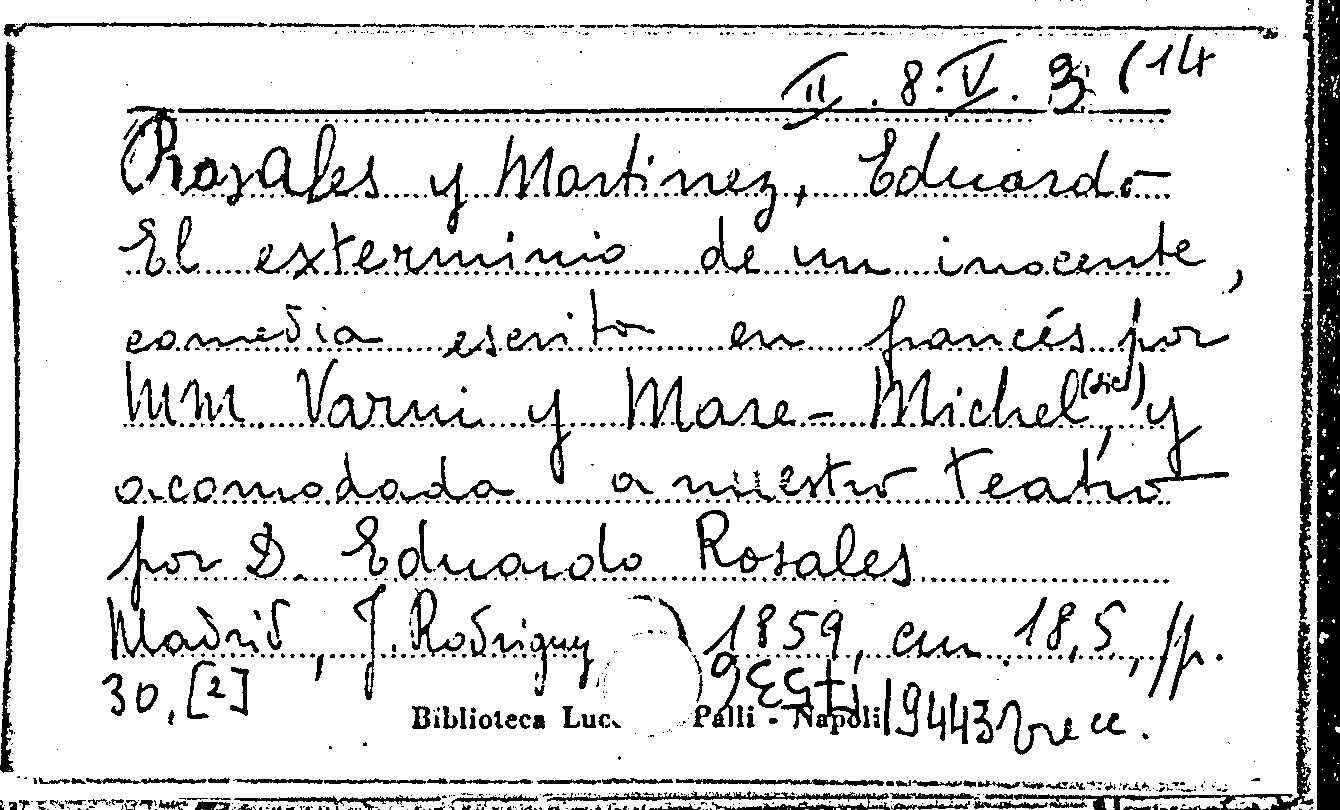 II. 8. V. 3 (14
Rosales y Martinez, Eduardo
El exterminio de un inocente,
comedia escrita en francés por
MM. Varni y Mare-Michel (sic), y
acomodada a nuestro teatro
por D. Eduardo Rosales
Madrid, J. Rodriguez 1859, cm. 18,5, pp.
30, [2]
Biblioteca Luc Palli - Napoli 19443